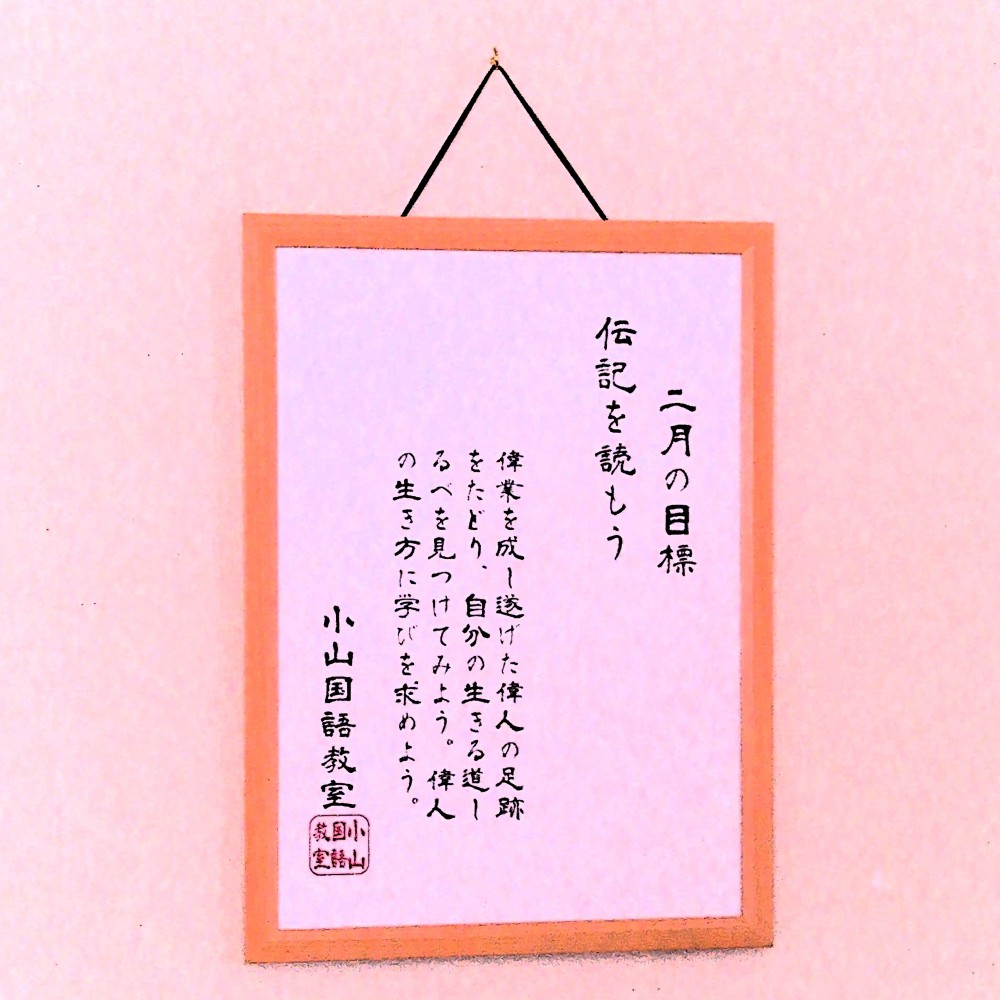 二月の目標
伝記を読もう
偉業を成し遂げた偉人の足跡
をたどり、自分の生きる道し
るべを見つけてみよう。偉人
の生き方に学びを求めよう。
小山国語教室
小山
国語
教室